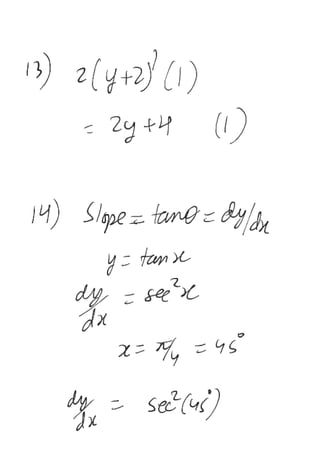 13) 2(y+2)¹(1)
= 2y+4 (1)
14) Slope = tanθ = dy/dx
y = tan x
dy/dx = sec²x
x = π/4 = 45°
dy/dx = sec²(45°)